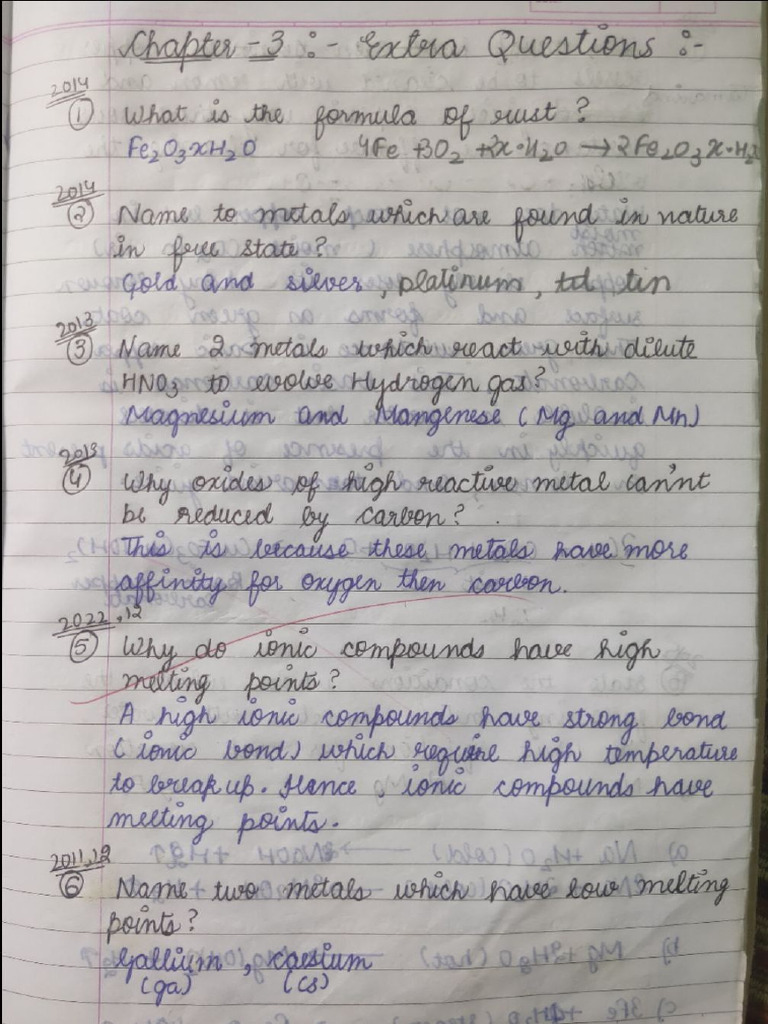 Chapter - 3 :- Extra Questions :-
2014
① What is the formula of rust ?
Fe2O3xH2O 4Fe + 3O2 + 2x·H2O → 2Fe2O3x·H2O
2014
② Name to metals which are found in nature
in free state ?
Gold and silver, platinum, tin
2013
③ Name 2 metals which react with dilute
HNO3 to evolve Hydrogen gas?
Magnesium and Mangenese (Mg and Mn)
2013
④ Why oxides of high reactive metal can'nt
be reduced by carbon ?
This is because these metals have more
affinity for oxygen then carbon.
2022, 12
⑤ Why do ionic compounds have high
melting points ?
A high ionic compounds have strong bond
(ionic bond) which require high temperature
to break up. Hence, ionic compounds have
melting points.
2011,12
⑥ Name two metals which have low melting
points ?
Gallium, caesium
(ga) (cs)